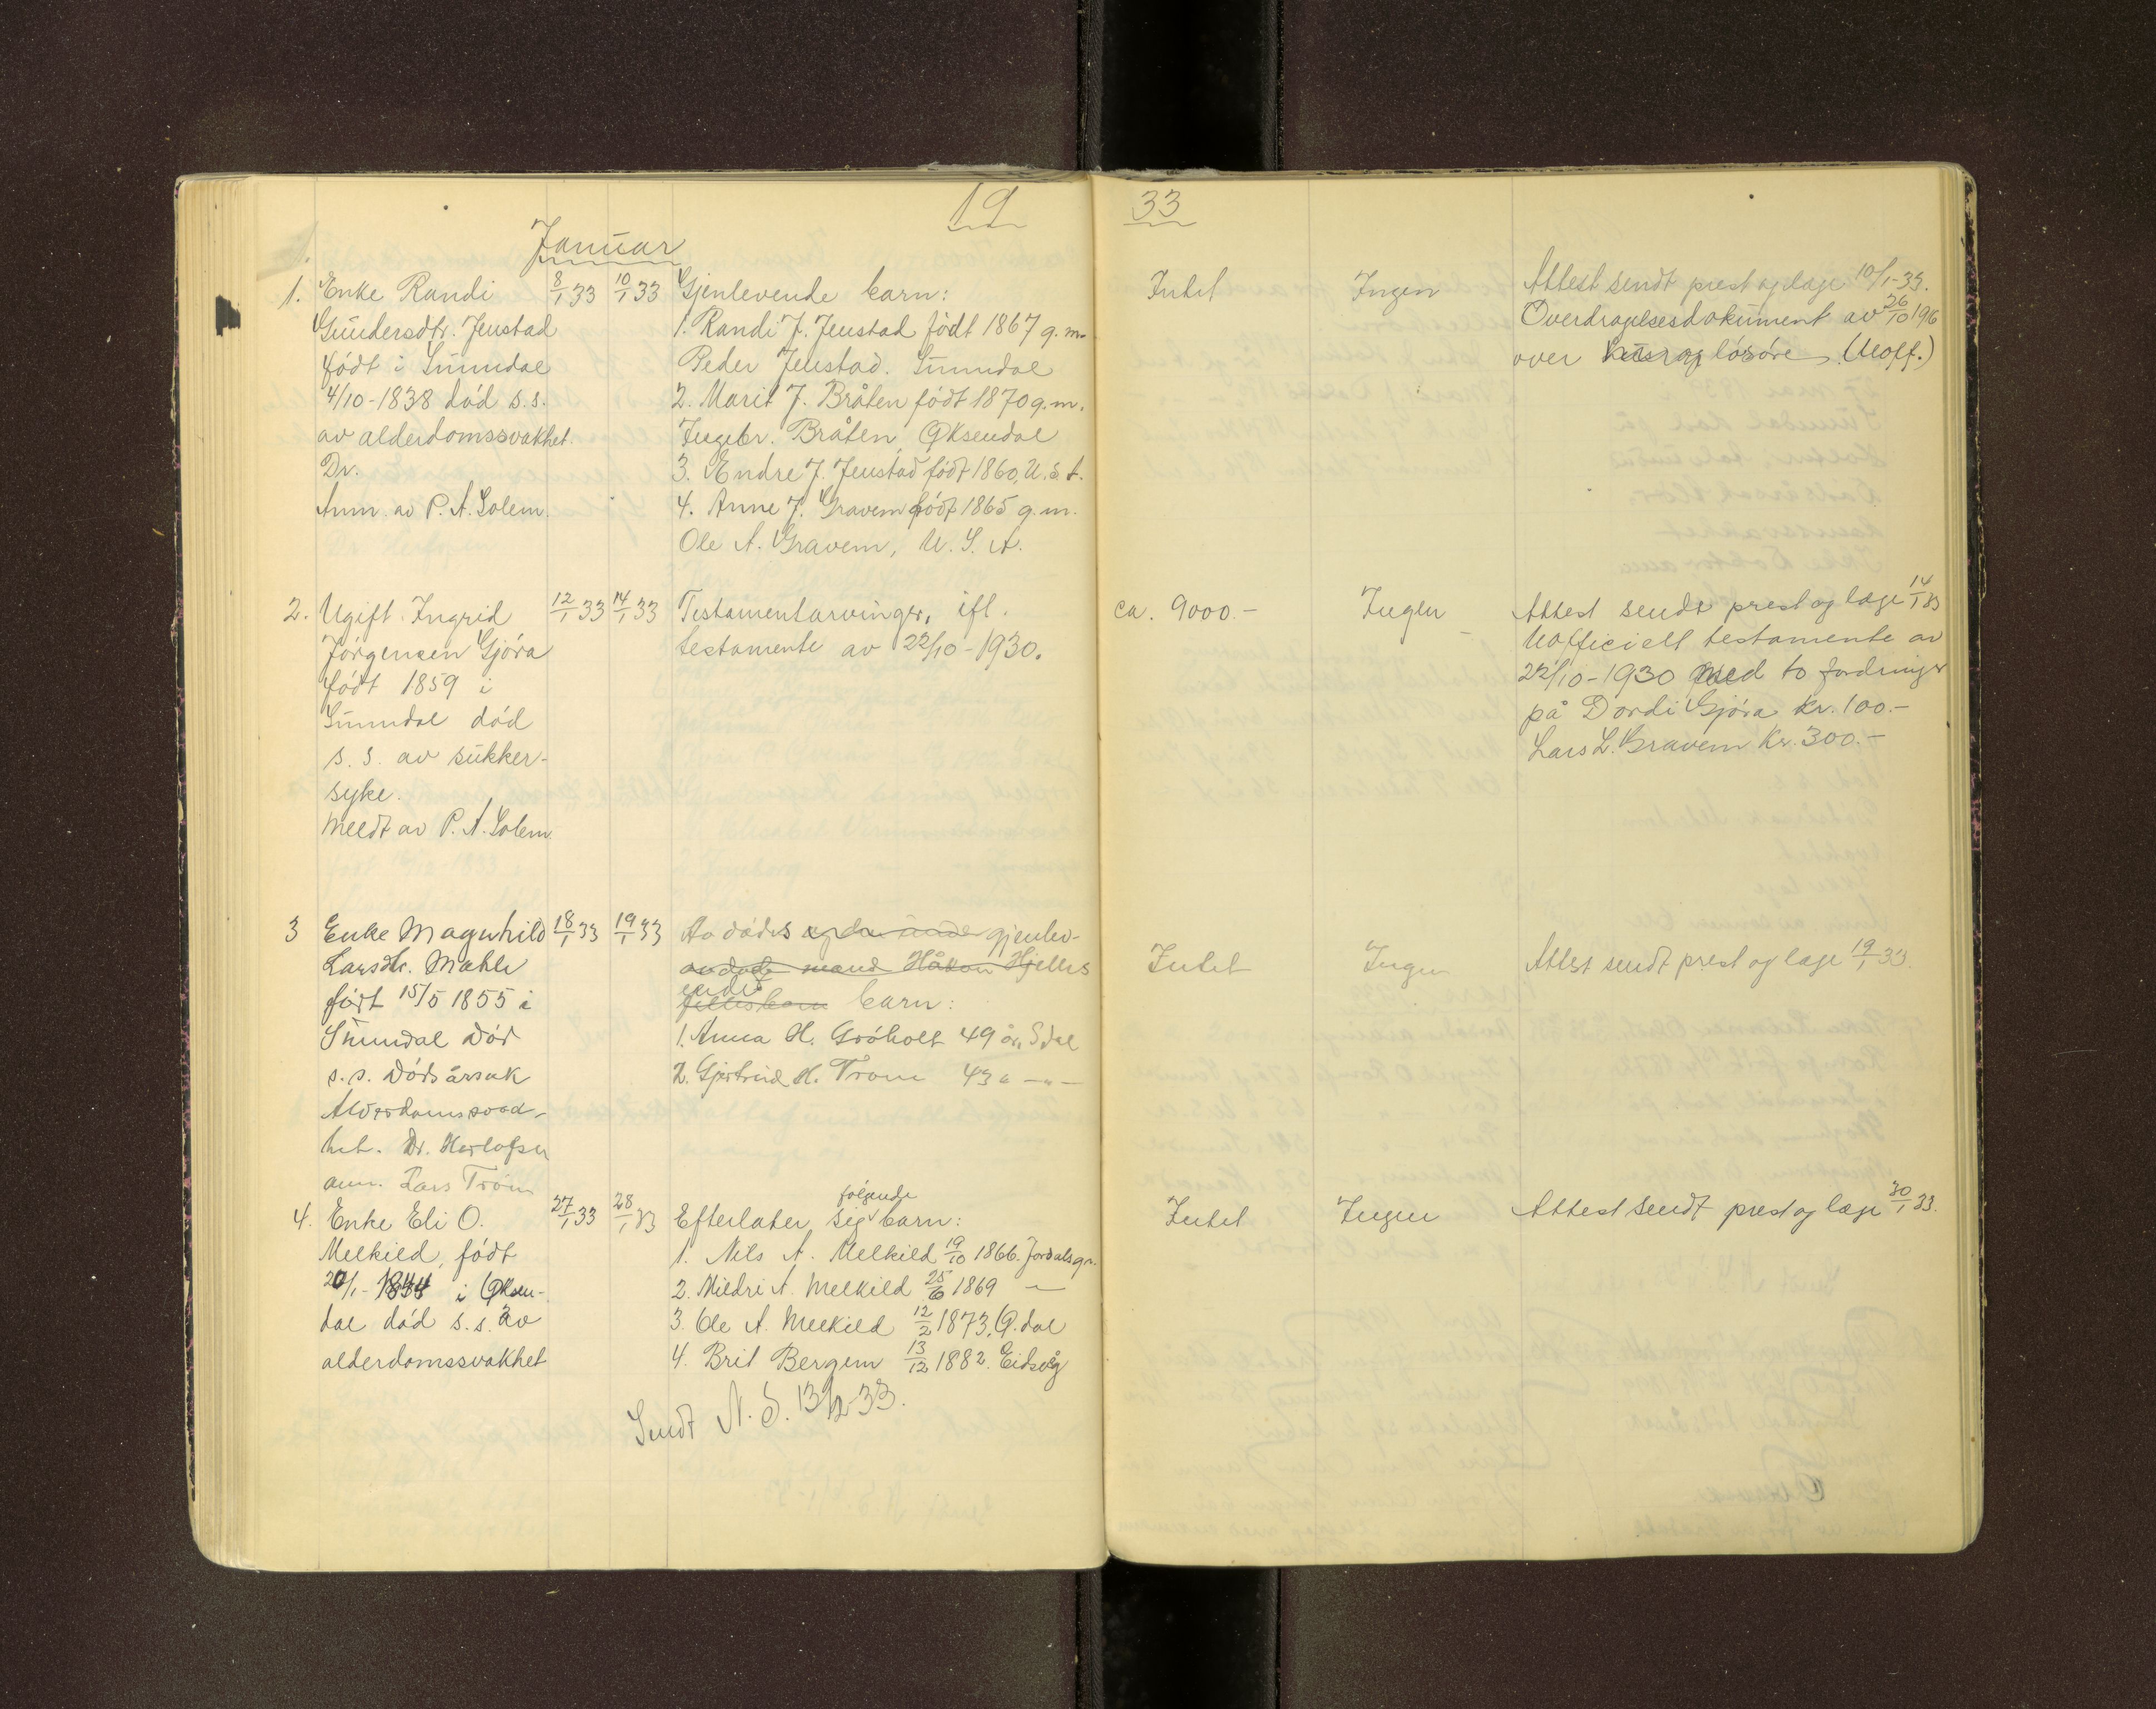 19 33
Januar
1. Enke Randi 8/1 33 10/1 33 Gjenlevende barn: Intet Ingen Attest sendt prest og læge 10/1-33.
Gundersdtr. Jenstad 1. Randi J. Jenstad født 1867 g.m. Overdragelsesdokument av 26/10 1916
født i Sunndal Peder Jenstad. Sunndal over hus og løsøre (Uoff.)
4/10-1838 død s.s. 2. Marit J. Bråten født 1870 g.m.
av alderdomssvakhet. Ingebr. Bråten, Øksendal
Dr. 3. Endre J. Jenstad født 1860, U.S.A.
Anm. av P. A. Solem. 4. Anne J. Gravem født 1865 g.m.
Ole A. Gravem, U. S. A.
2. Ugift Ingrid 12/1 33 14/1 33 Testamentarvinger, ifl. ca. 9000.- Ingen Attest sendt prest og læge 14/1 33
Jørgensen Gjøra testamente av 22/10-1930. Uofficielt testamente av
født 1859 i 22/10-1930 med to fordringer
Sunndal død på Dordi Gjøra kr. 100.-
s. s. av sukker- Lars L. Gravem kr. 300.-
syke.
Meldt av P. A. Solem
3 Enke Magnhild 18/1 33 19/1 33 Av dødes gjenlev- Intet Ingen Attest sendt prest og læge 19/1 33.
Larsdtr. Mæhle avdøde mand Håkon Hjelles
født 15/5 1855 i ende fellesbarn barn:
Sunndal død 1. Anna H. Grøholt 49 år, S.dal
s.s. Dødsårsak 2. Gjertrud H. Trøen 43 " -"-
Alderdomssvak-
het. Dr. Herlofsen
anm. Lars Trøen
4. Enke Eli O. 27/1 33 28/1 33 Efterlater sig følgende barn: Intet Ingen Attest sendt prest og læge 30/1 33.
Melkild, født 1. Nils A. Melkild 19/10 1866. Jordalsgr.
20/1-1844 i Øksen- 2. Mildri A. Melkild 25/6 1869 —
dal død s.s. av 3. Ole A. Melkild 12/2 1873, Ø.dal
alderdomssvakhet 4. Brit Bergem 13/12 1882. Eidsvåg
Sendt N. S. 13/2 33.